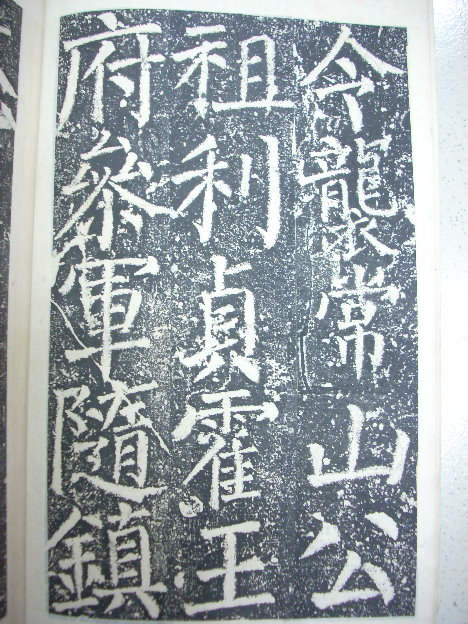 令襲常山公
祖利貞霍王
府參軍隨鎮